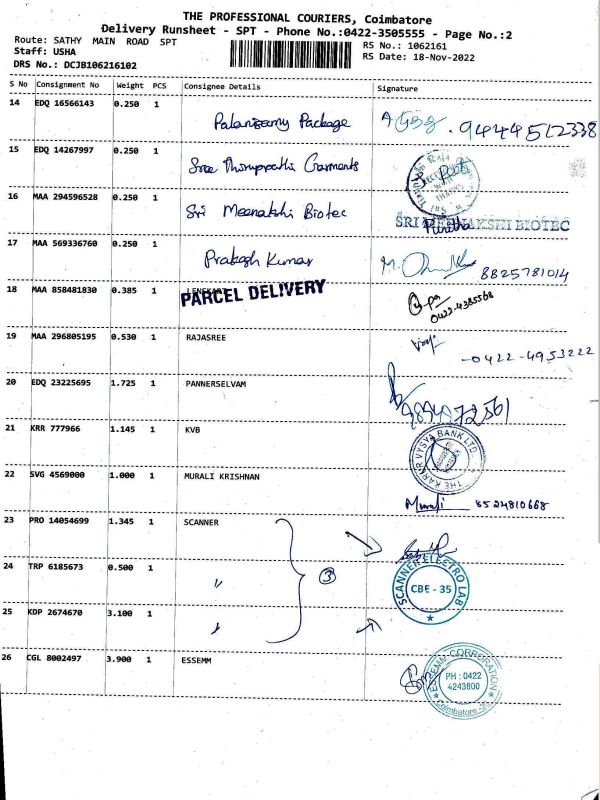 THE PROFESSIONAL COURIERS, Coimbatore
Delivery Runsheet - SPT - Phone No.:0422-3505555 - Page No.:2
Route: SATHY MAIN ROAD SPT
RS No.: 1062161
Staff: USHA
RS Date: 18-Nov-2022
DRS No.: DCJB106216102
S No Consignment No Weight PCS Consignee Details Signature
14 EDQ 16566143 0.250 1
Palanisamy Package 9444512338
15 EDQ 14267997 0.250 1
Sree Thiruppathi Garments
16 MAA 294596528 0.250 1
Sri Meenakshi Biotec
SRI MEENAKSHI BIOTEC
17 MAA 569336760 0.250 1
Prakash Kumar 8825781014
18 MAA 858481830 0.385 1
PARCEL DELIVERY
0422-4385568
19 MAA 296805195 0.530 1 RAJASREE
-0422-4953222
20 EDQ 23225695 1.725 1 PANNERSELVAM
9894972561
21 KRR 777966 1.145 1 KVB
THE KARUR VYSYA BANK LTD.
22 SVG 4569000 1.000 1 MURALI KRISHNAN
Murali 8524810668
23 PRO 14054699 1.345 1 SCANNER
24 TRP 6185673 0.500 1 〃
3
SCANNER ELECTRO LAB
CBE - 35
25 KDP 2674670 3.100 1 〃
26 CGL 8002497 3.900 1 ESSEMM
ESSEMM CORPORATION
PH : 0422
4243800